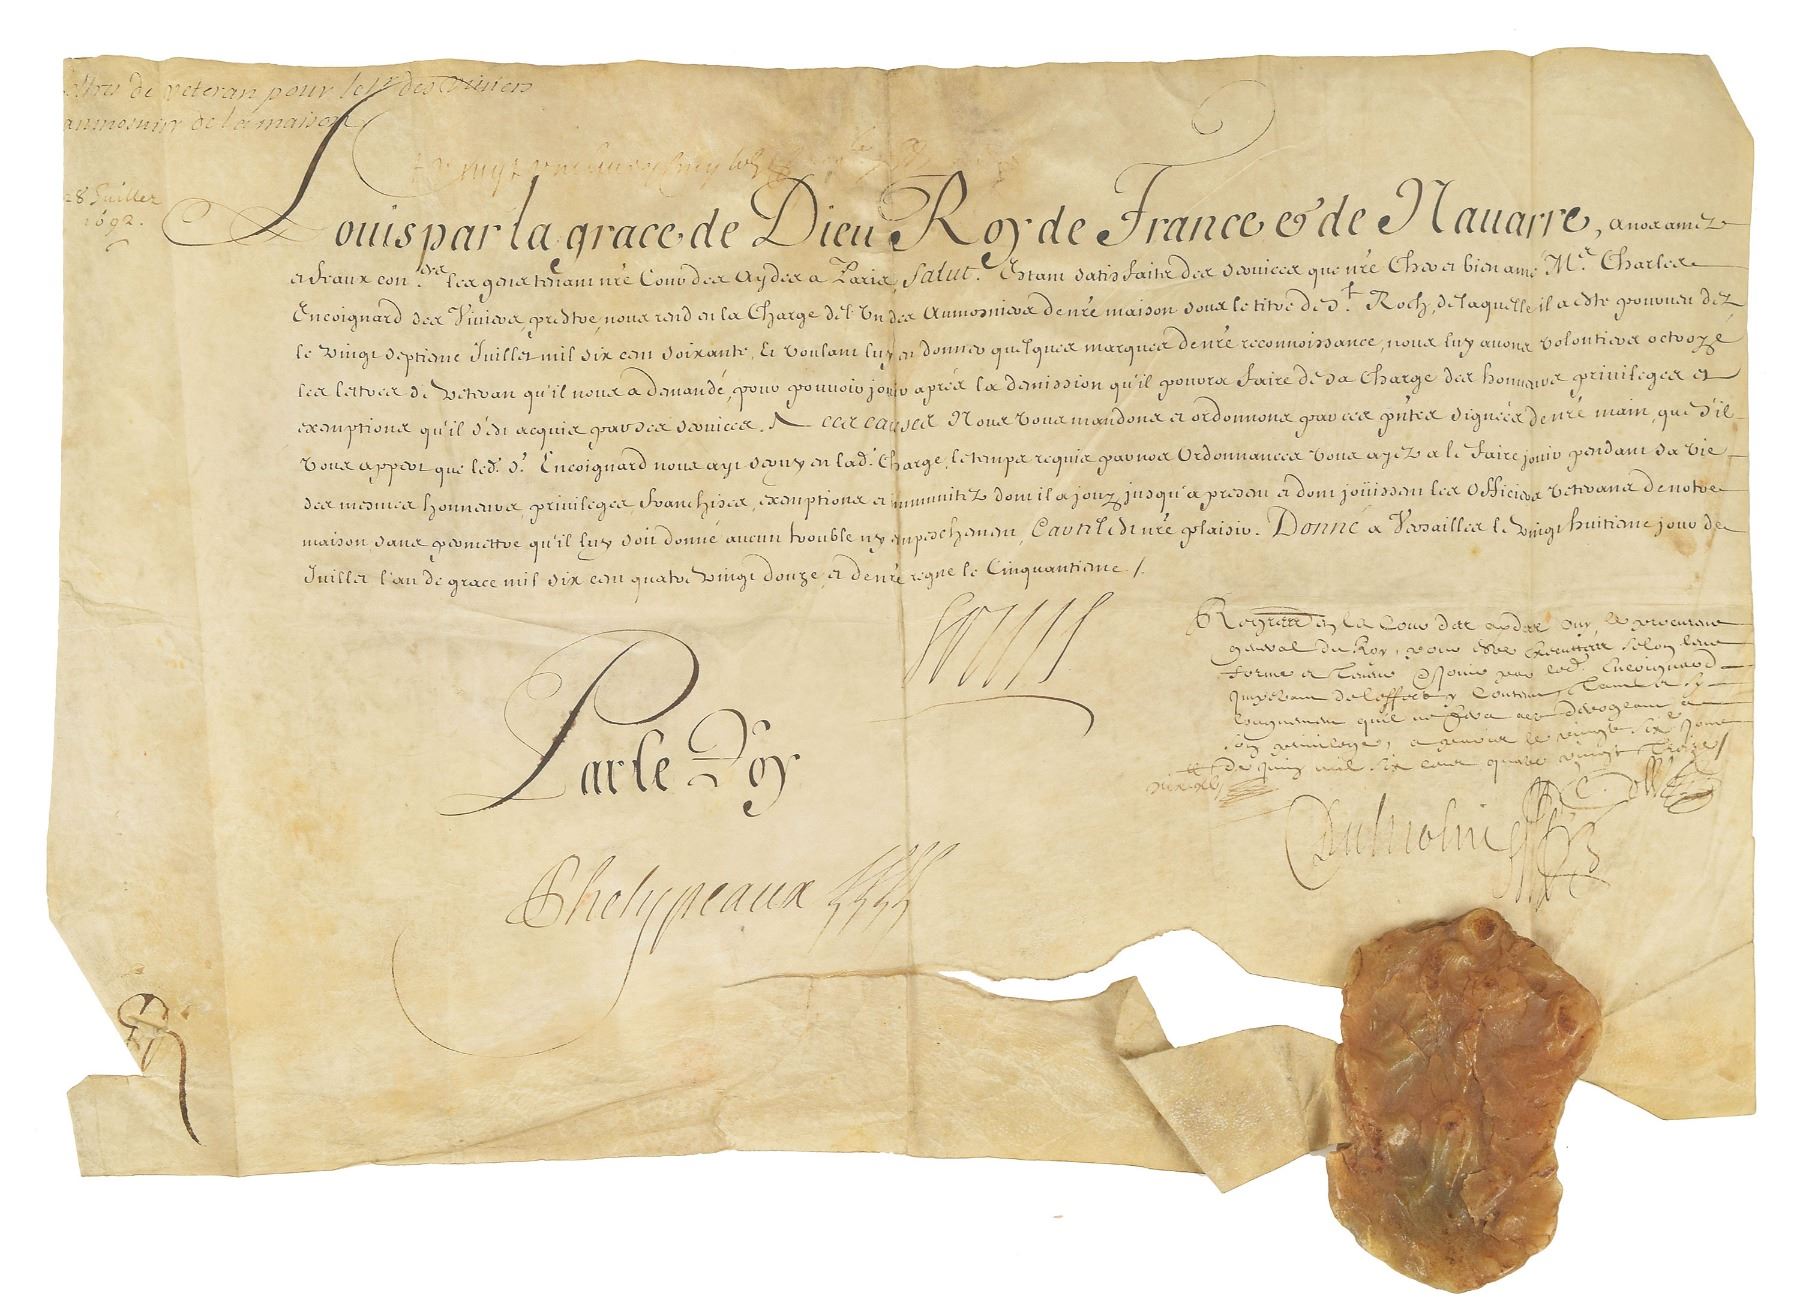 de veteran pour le Sr des Viviers
aumosnier de la maison
28 Juillet
1692.
Louis par la grace de Dieu Roy de France et de Nauarre, a nos amez
et feaux con.ers les gens tenant nre Cour des Aydes a Paris, Salut. Estant satisfaits des seruices que nre Cher et bien amé Mr. Charles
Encoignard des Viuiers, prestre, nous rend en la Charge de l'Un des Aumosniers de nre maison sous le titre de St. Roch, de laquelle il a esté pourueu dez
le vingt septieme Juillet mil six cens soixante, Et voulant luy en donner quelques marques de nre reconnoissance, nous luy auons volontiers octroyé
les lettres de veteran qu'il nous a demandé, pour pouuoir jouir aprés la demission qu'il pourra faire de sa Charge des honneurs priuileges et
exemptions qu'il s'est acquis par ses seruices. A ces causes Nous vous mandons et ordonnons par ces pntes signées de nre main, que s'il
vous appert que led. Sr. Encoignard nous ayt seruy en lad. Charge, le temps requis par nos Ordonnances vous ayez a le faire jouir pendant sa vie
des mesmes honneurs, priuileges, franchises, exemptions et immunitez dont il a jouy jusqu'a present et dont joüissent les Officiers veterans de notre
maison, sans permettre qu'il luy soit donné aucun trouble ny empeschement, Car tel est nre plaisir. Donné a Versailles le vingt huitieme jour de
Juillet l'an de grace mil six cens quatre vingt douze, et de nre regne le Cinquantieme /.
Louis
Registrées en la Cour des aydes ouy le procureur
general du Roy, pour estre executées selon leur
forme et teneur et jouir par led. Encoignard
Impetrant de l'effect y contenu
qu'il ne fera acte derogeant a
son priuilege, a Paris le vingt six jour
de Juin mil six cens quatre vingt treize /
Par le Roy
Dumolin
Phelypeaux